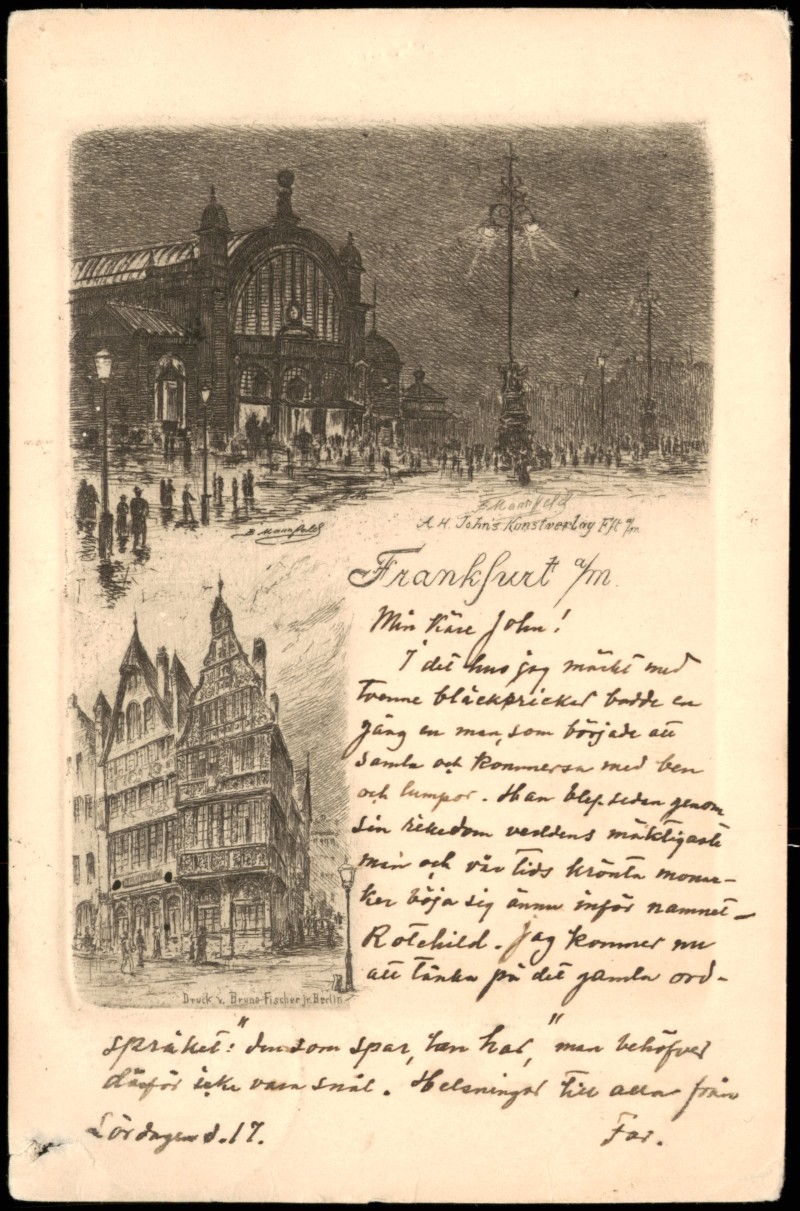 B Mannfeld
B. Mannfeld
A. H. John's Kunstverlag F/t a/m.
Frankfurt a/m.
Min käre John!
I det hus jag märkt med
tvenne bläckprickar bodde en
gång en man, som började att
samla och kommersa med ben
och lumpor. Han blef sedan genom
sin rikedom verldens mäktigaste
man och vår tids krönta monar-
ker böja sig ännu inför namnet
Rotchild. Jag kommer nu
att tänka på det gamla ord-
Druck v. Bruno Fischer jr. Berlin
språket: "den som spar, han har," man behöfver
därför icke vara snål. Helsningar till alla från
Lördagen d. 17. Far.